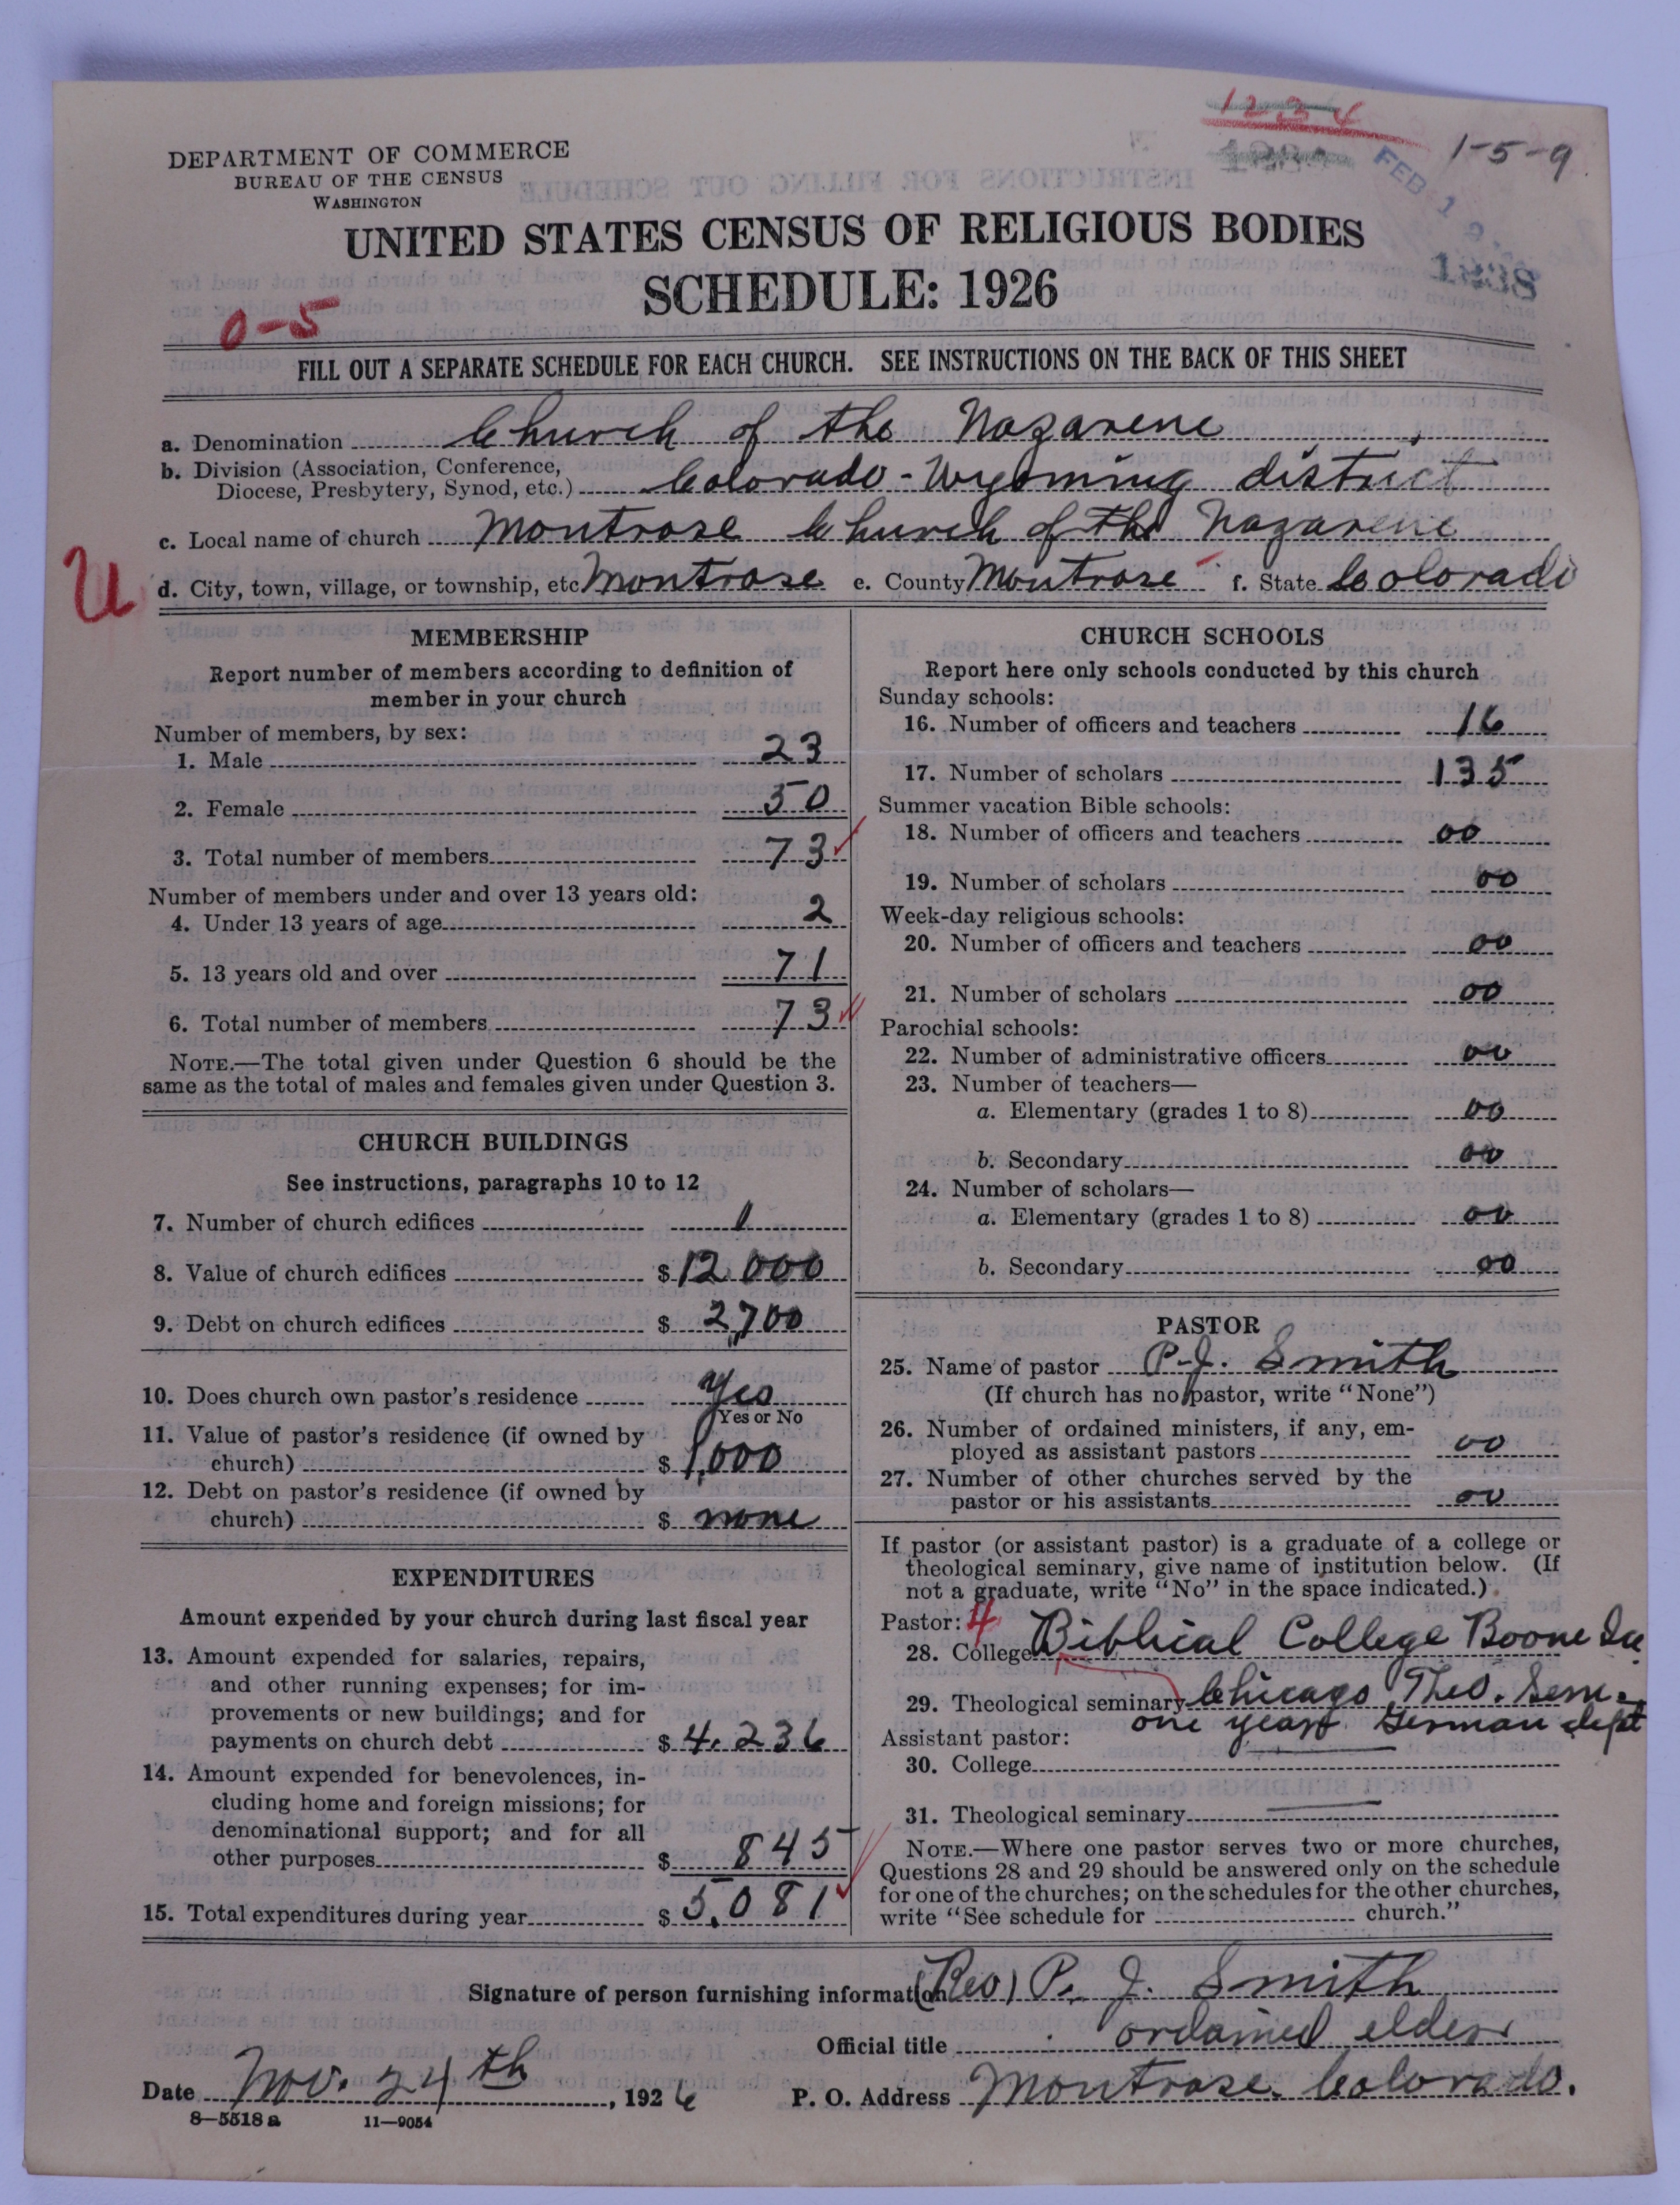 1234
1-5-9
DEPARTMENT OF COMMERCE
BUREAU OF THE CENSUS
WASHINGTON
FEB 1 9
1238
UNITED STATES CENSUS OF RELIGIOUS BODIES
SCHEDULE: 1926
0-5
FILL OUT A SEPARATE SCHEDULE FOR EACH CHURCH. SEE INSTRUCTIONS ON THE BACK OF THIS SHEET
a. Denomination Church of the Nazarene
b. Division (Association, Conference,
Diocese, Presbytery, Synod, etc.) Colorado-Wyoming district
c. Local name of church Montrose Church of the Nazarene
U
d. City, town, village, or township, etc Montrose e. County Montrose f. State Colorado
MEMBERSHIP
Report number of members according to definition of
member in your church
Number of members, by sex:
1. Male 23
2. Female 50
3. Total number of members 73
Number of members under and over 13 years old:
4. Under 13 years of age 2
5. 13 years old and over 71
6. Total number of members 73
NOTE.—The total given under Question 6 should be the
same as the total of males and females given under Question 3.
CHURCH BUILDINGS
See instructions, paragraphs 10 to 12
7. Number of church edifices 1
8. Value of church edifices $ 12 000
9. Debt on church edifices $ 2,700
10. Does church own pastor's residence Yes
Yes or No
11. Value of pastor's residence (if owned by
church) $ 1,000
12. Debt on pastor's residence (if owned by
church) $ none
EXPENDITURES
Amount expended by your church during last fiscal year
13. Amount expended for salaries, repairs,
and other running expenses; for im-
provements or new buildings; and for
payments on church debt $ 4.236
14. Amount expended for benevolences, in-
cluding home and foreign missions; for
denominational support; and for all
other purposes $ 845
15. Total expenditures during year $ 5,081
CHURCH SCHOOLS
Report here only schools conducted by this church
Sunday schools:
16. Number of officers and teachers 16
17. Number of scholars 135
Summer vacation Bible schools:
18. Number of officers and teachers 00
19. Number of scholars 00
Week-day religious schools:
20. Number of officers and teachers 00
21. Number of scholars 00
Parochial schools:
22. Number of administrative officers 00
23. Number of teachers—
a. Elementary (grades 1 to 8) 00
b. Secondary 00
24. Number of scholars—
a. Elementary (grades 1 to 8) 00
b. Secondary 00
PASTOR
25. Name of pastor P.J. Smith
(If church has no pastor, write "None")
26. Number of ordained ministers, if any, em-
ployed as assistant pastors 00
27. Number of other churches served by the
pastor or his assistants 00
If pastor (or assistant pastor) is a graduate of a college or
theological seminary, give name of institution below. (If
not a graduate, write "No" in the space indicated.)
Pastor: 4
28. College Biblical College Boone
29. Theological seminary Chicago Theo. Sem.
one year German dept
Assistant pastor:
30. College
31. Theological seminary
NOTE.—Where one pastor serves two or more churches,
Questions 28 and 29 should be answered only on the schedule
for one of the churches; on the schedules for the other churches,
write "See schedule for church."
Signature of person furnishing information (Rev) P. J. Smith
Official title ordained elder
Date Nov. 24th, 1926 P. O. Address Montrose. Colorado.
8—5518 a 11—9054